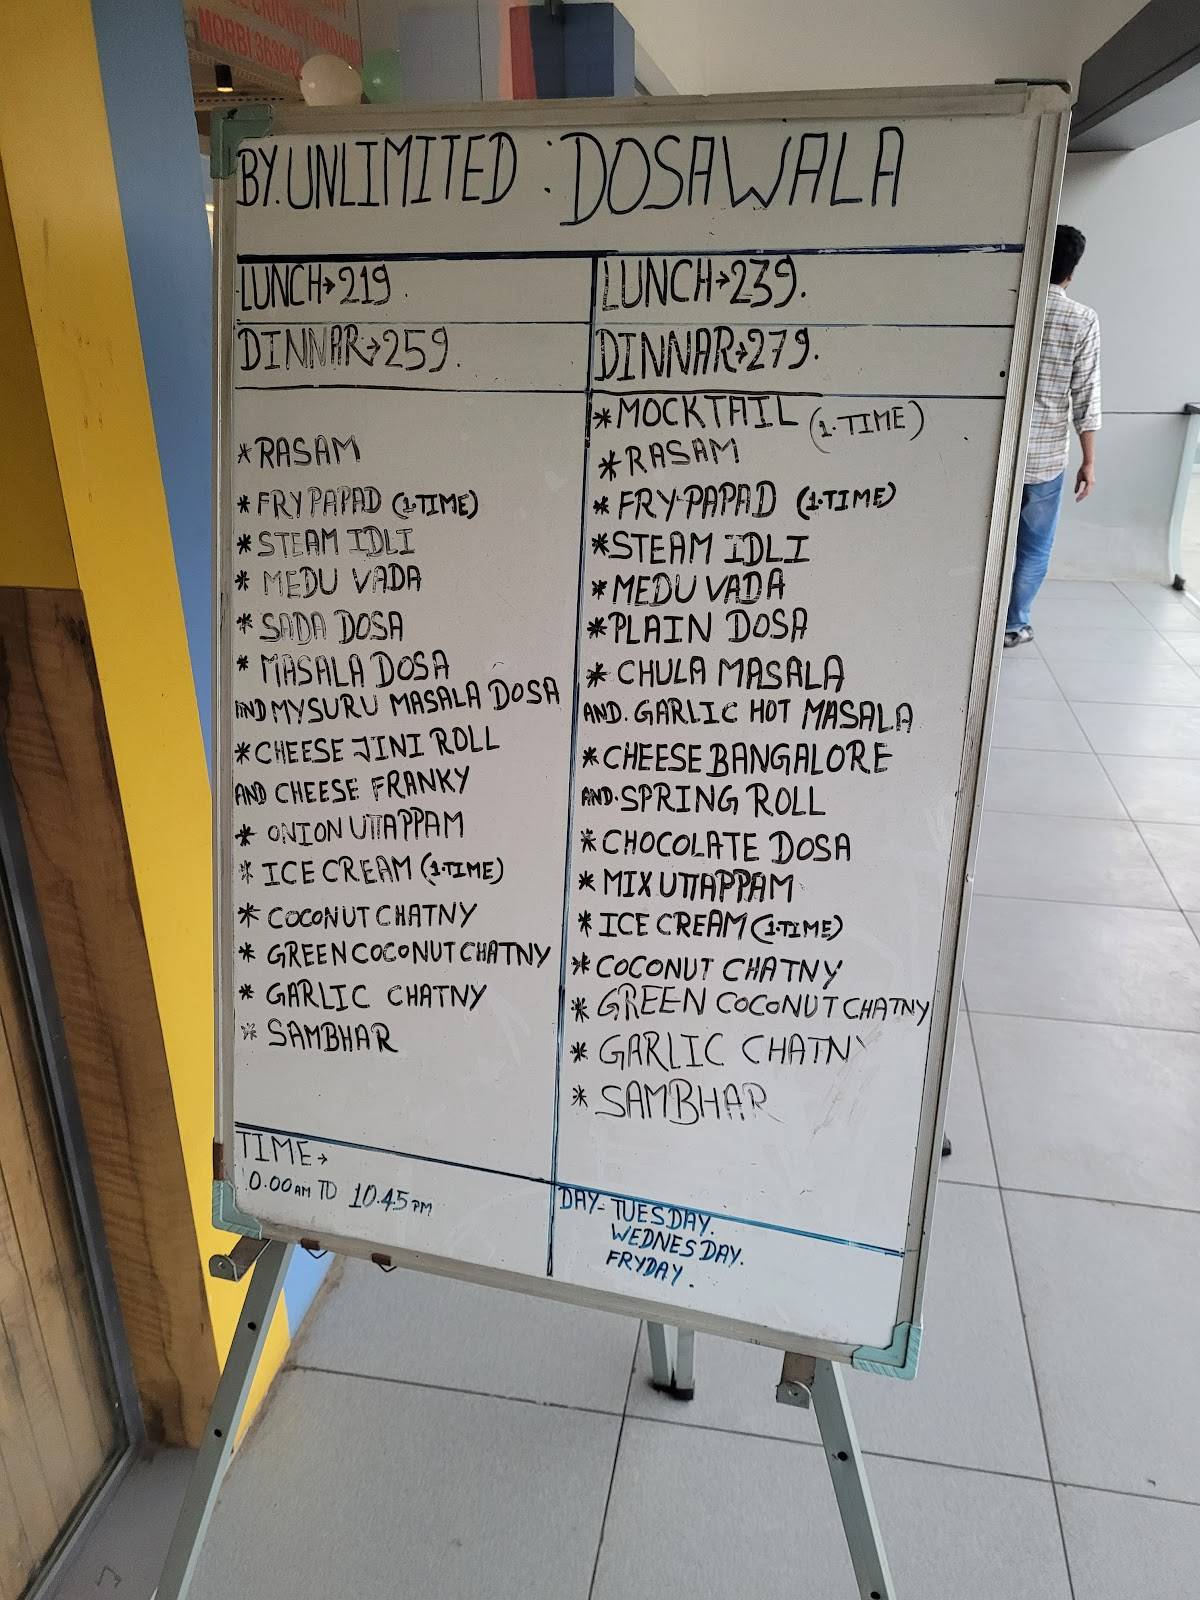 CRICKET GROUND
MORBI 363642
BY.UNLIMITED : DOSAWALA
LUNCH→219.
DINNAR→259.
* RASAM
* FRY PAPAD (1.TIME)
* STEAM IDLI
* MEDU VADA
* SADA DOSA
* MASALA DOSA
AND MYSURU MASALA DOSA
* CHEESE JINI ROLL
AND CHEESE FRANKY
* ONION UTTAPPAM
* ICE CREAM (1.TIME)
* COCONUT CHATNY
* GREEN COCONUT CHATNY
* GARLIC CHATNY
* SAMBHAR
TIME→
0.00 AM TO 10.45 PM
LUNCH→239.
DINNAR→279.
* MOCKTAIL (1.TIME)
* RASAM
* FRY-PAPAD (1.TIME)
* STEAM IDLI
* MEDU VADA
* PLAIN DOSA
* CHULA MASALA
AND. GARLIC HOT MASALA
* CHEESE BANGALORE
AND. SPRING ROLL
* CHOCOLATE DOSA
* MIX UTTAPPAM
* ICE CREAM (1.TIME)
* COCONUT CHATNY
* GREEN COCONUT CHATNY
* GARLIC CHATNY
* SAMBHAR
DAY- TUESDAY.
WEDNESDAY.
FRYDAY.